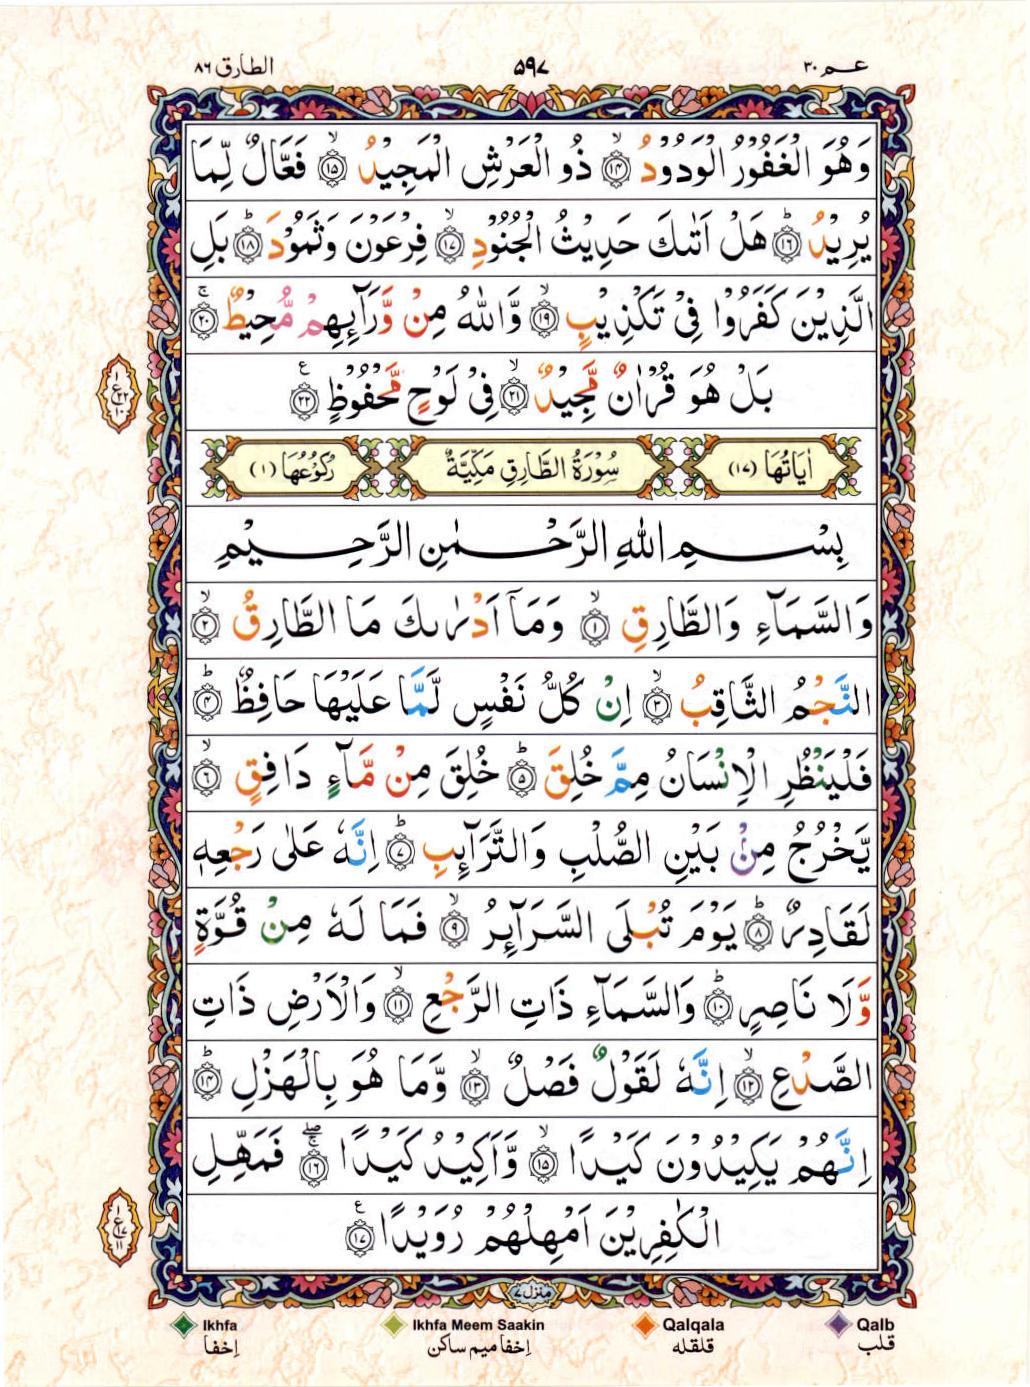 عـــم ٣٠ ۵۹۷ الطارق ٨٦
وَهُوَ الْغَفُوْرُ الْوَدُوْدُ ۙ‏﴿۱۴﴾ ذُو الْعَرْشِ الْمَجِيْدُ ۙ‏﴿۱۵﴾ فَعَّالٌ لِّمَا
يُرِيْدُ ؕ‏﴿۱۶﴾ هَلْ اَتٰىكَ حَدِيْثُ الْجُنُوْدِ ۙ‏﴿۱۷﴾ فِرْعَوْنَ وَثَمُوْدَ ؕ‏﴿۱۸﴾ بَلِ
الَّذِيْنَ كَفَرُوْا فِىْ تَكْذِيْبٍ ۙ‏﴿۱۹﴾ وَّاللّٰهُ مِنْ وَّرَآئِهِمْ مُّحِيْطٌ ۚ‏﴿۲۰﴾
بَلْ هُوَ قُرْاٰنٌ مَّجِيْدٌ ۙ‏﴿۲۱﴾ فِىْ لَوْحٍ مَّحْفُوْظٍ ‏﴿۲۲﴾ ع
ع ١ ٢٢ ١٠
اٰيَاتُهَا (١٧) سُوْرَةُ الطَّارِقِ مَكِّيَّةٌ رُكُوْعُهَا (١)
بِسْـــمِ اللّٰهِ الرَّحْـــمٰنِ الرَّحِـــيْمِ
وَالسَّمَآءِ وَالطَّارِقِ ۙ‏﴿۱﴾ وَمَاۤ اَدْرٰٮكَ مَا الطَّارِقُ ۙ‏﴿۲﴾
النَّجْمُ الثَّاقِبُ ۙ‏﴿۳﴾ اِنْ كُلُّ نَفْسٍ لَّمَّا عَلَيْهَا حَافِظٌ ؕ‏﴿۴﴾
فَلْيَنْظُرِ الْاِنْسَانُ مِمَّ خُلِقَ ؕ‏﴿۵﴾ خُلِقَ مِنْ مَّآءٍ دَافِقٍ ۙ‏﴿۶﴾
يَّخْرُجُ مِنْۢ بَيْنِ الصُّلْبِ وَالتَّرَآئِبِ ؕ‏﴿۷﴾ اِنَّهٗ عَلٰى رَجْعِهٖ
لَقَادِرٌ ؕ‏﴿۸﴾ يَوْمَ تُبْلَى السَّرَآئِرُ ۙ‏﴿۹﴾ فَمَا لَهٗ مِنْ قُوَّةٍ
وَّلَا نَاصِرٍ ؕ‏﴿۱۰﴾ وَالسَّمَآءِ ذَاتِ الرَّجْعِ ۙ‏﴿۱۱﴾ وَالْاَرْضِ ذَاتِ
الصَّدْعِ ۙ‏﴿۱۲﴾ اِنَّهٗ لَقَوْلٌ فَصْلٌ ۙ‏﴿۱۳﴾ وَّمَا هُوَ بِالْهَزْلِ ؕ‏﴿۱۴﴾
اِنَّهُمْ يَكِيْدُوْنَ كَيْدًا ۙ‏﴿۱۵﴾ وَّاَكِيْدُ كَيْدًا ۖۚ‏﴿۱۶﴾ فَمَهِّلِ
الْكٰفِرِيْنَ اَمْهِلْهُمْ رُوَيْدًا ‏﴿۱۷﴾ ع
ع ١ ١٧ ١١
منزل ٧
Ikhfa Ikhfa Meem Saakin Qalqala Qalb
إخفا إخفا ميم ساكن قلقله قلب